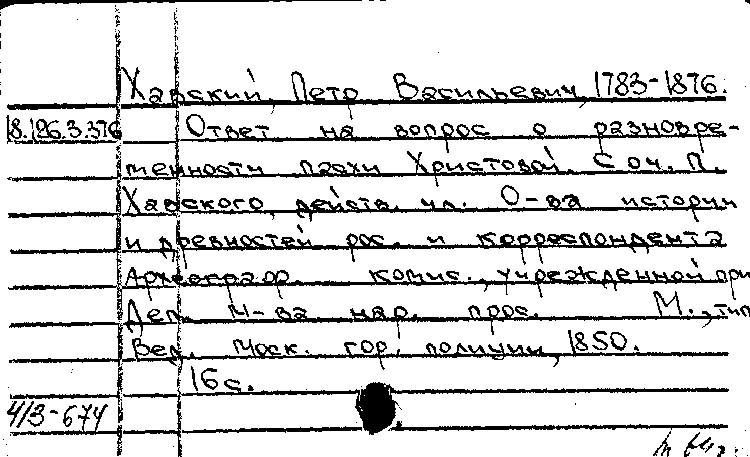 Хавский, Петр Васильевич, 1783-1876.
18.126.3.376 Ответ на вопрос о разновре-
менности пасхи Христовой. Соч. П.
Хавского, действ. чл. О-ва истории
и древностей рос. и корреспондента
Археограф. комис., учрежденной при
Деп. М-ва нар. прос. М., тип
Вед. Моск. гор. полиции, 1850.
16 с.
4/3-674